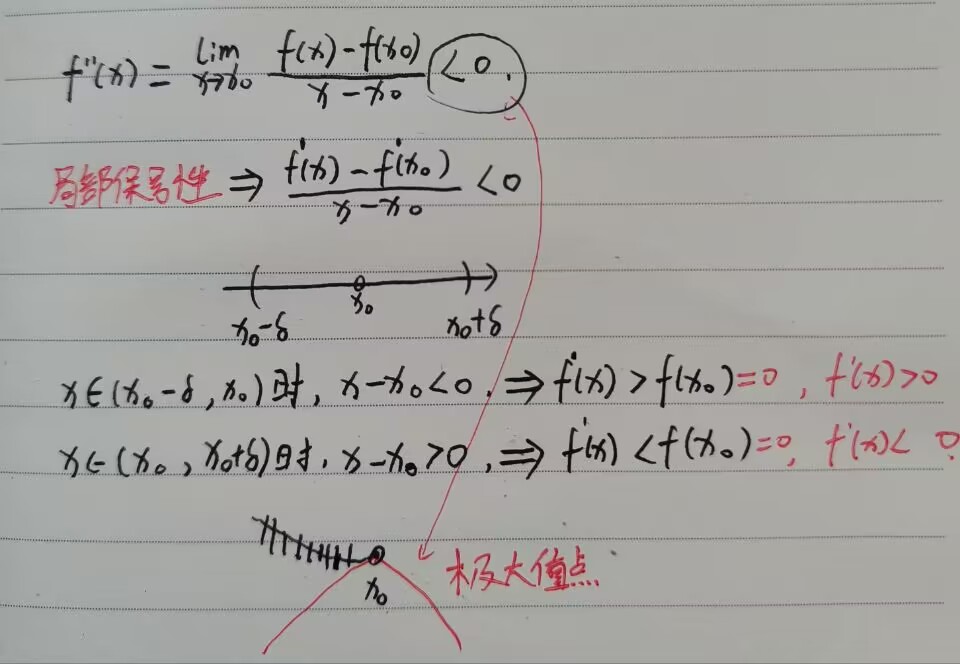 f''(x) = lim x→x₀ (f(x)-f(x₀))/(x-x₀) <0.
局部保号性 ⇒ (f'(x)-f'(x₀))/(x-x₀) <0
x₀-δ x₀ x₀+δ
x∈(x₀-δ,x₀)时, x-x₀<0, ⇒ f'(x)>f(x₀)=0, f'(x)>0
x∈(x₀,x₀+δ)时, x-x₀>0, ⇒ f'(x)<f(x₀)=0, f'(x)<0.
极大值点
x₀